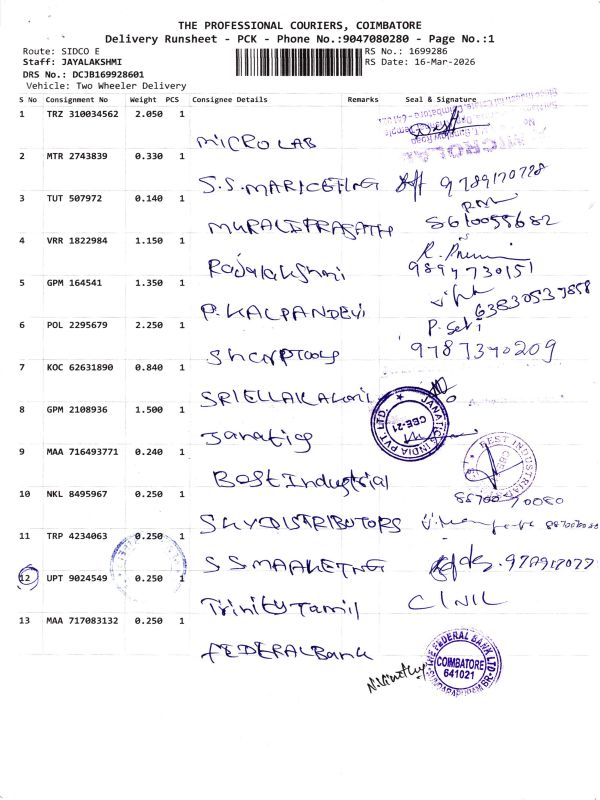 THE PROFESSIONAL COURIERS, COIMBATORE
Delivery Runsheet - PCK - Phone No.:9047080280 - Page No.:1
Route: SIDCO E
RS No.: 1699286
Staff: JAYALAKSHMI
RS Date: 16-Mar-2026
DRS No.: DCJB169928601
Vehicle: Two Wheeler Delivery
S No Consignment No Weight PCS Consignee Details Remarks Seal & Signature
1 TRZ 310034562 2.050 1
MICROLAB
2 MTR 2743839 0.330 1
S.S. MARKETING 9789170778
3 TUT 507972 0.140 1
MURALIPRASATH 8610055682
4 VRR 1822984 1.150 1
Rajalakshmi 9894730151
5 GPM 164541 1.350 1
P. KALPANDEVI
6 POL 2295679 2.250 1
P. Selvi
9787340209
7 KOC 62631890 0.840 1
8 GPM 2108936 1.500 1
JANATICS INDIA PVT LTD. CBE-21
Janatics
9 MAA 716493771 0.240 1
BEST INDUSTRIAL
Best Industrial
10 NKL 8495967 0.250 1
SKYDISTRIBUTORS
11 TRP 4234063 0.250 1
12 UPT 9024549 0.250 1
Trinity Tamil
13 MAA 717083132 0.250 1
FEDERAL Bank
THE FEDERAL BANK LTD.
COIMBATORE
641021